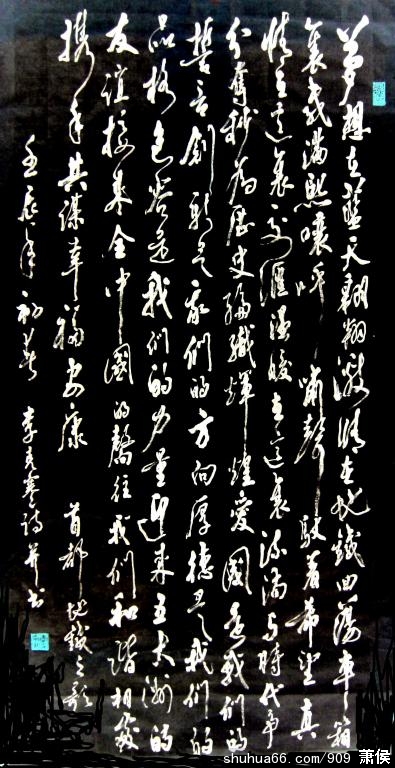 梦想在蓝天翱翔激情在地铁回荡车箱
里载满熙嚷呼啸声驶着希望真
情在这里交汇温暖在这里流淌与时代争
分夺秒为历史编织辉煌爱国是我们的
誓言创新是我们的方向厚德是我们的
品格包容是我们的力量迎来五大洲的
友谊接奉全中国的骄往我们和谐相发
携手共谋幸福安康 首都地铁之歌
壬辰年初春 李彦春诗并书
shuhua66.com/909 萧侯